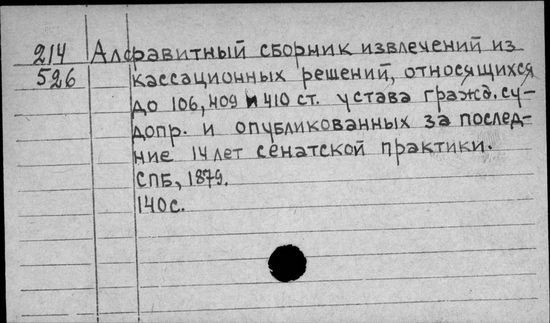 214 Алфавитный сборник извлечений из
526 кассационных решений, относящихся
до 106, 409 и 410 ст. устава гражд. су-
допр. и опубликованных за послед-
ние 14 лет сенатской практики.
СПБ, 1879.
140 с.